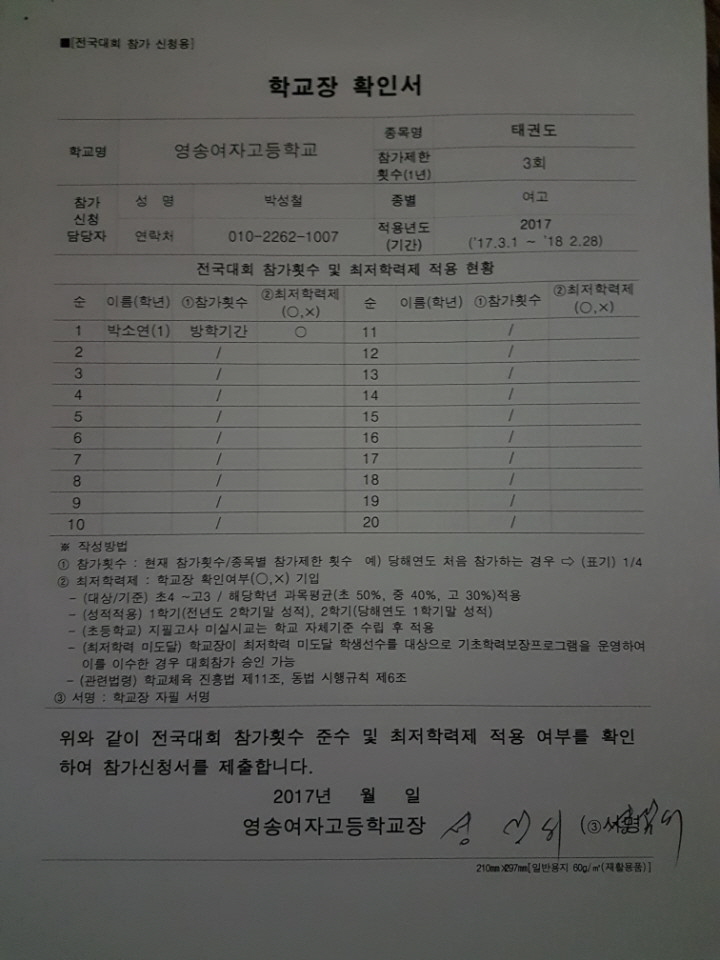 ■[전국대회 참가 신청용]
학교장 확인서
학교명 영송여자고등학교 종목명 태권도
참가제한 횟수(1년) 3회
참가 신청 담당자 성 명 박성철 종별 여고
연락처 010-2262-1007 적용년도 (기간) 2017 ('17.3.1 ~ '18 2.28)
전국대회 참가횟수 및 최저학력제 적용 현황
순 이름(학년) ①참가횟수 ②최저학력제 (○,×) 순 이름(학년) ①참가횟수 ②최저학력제 (○,×)
1 박소연(1) 방학기간 ○ 11 /
2 / 12 /
3 / 13 /
4 / 14 /
5 / 15 /
6 / 16 /
7 / 17 /
8 / 18 /
9 / 19 /
10 / 20 /
※ 작성방법
① 참가횟수 : 현재 참가횟수/종목별 참가제한 횟수 예) 당해연도 처음 참가하는 경우 ⇨ (표기) 1/4
② 최저학력제 : 학교장 확인여부(○,×) 기입
- (대상/기준) 초4 ~고3 / 해당학년 과목평균(초 50%, 중 40%, 고 30%)적용
- (성적적용) 1학기(전년도 2학기말 성적), 2학기(당해연도 1학기말 성적)
- (초등학교) 지필고사 미실시교는 학교 자체기준 수립 후 적용
- (최저학력 미도달) 학교장이 최저학력 미도달 학생선수를 대상으로 기초학력보장프로그램을 운영하여
이를 이수한 경우 대회참가 승인 가능
- (관련법령) 학교체육 진흥법 제11조, 동법 시행규칙 제6조
③ 서명 : 학교장 자필 서명
위와 같이 전국대회 참가횟수 준수 및 최저학력제 적용 여부를 확인
하여 참가신청서를 제출합니다.
2017년 월 일
영송여자고등학교장 (③서명)
210㎜×297㎜[일반용지 60g/㎡(재활용품)]